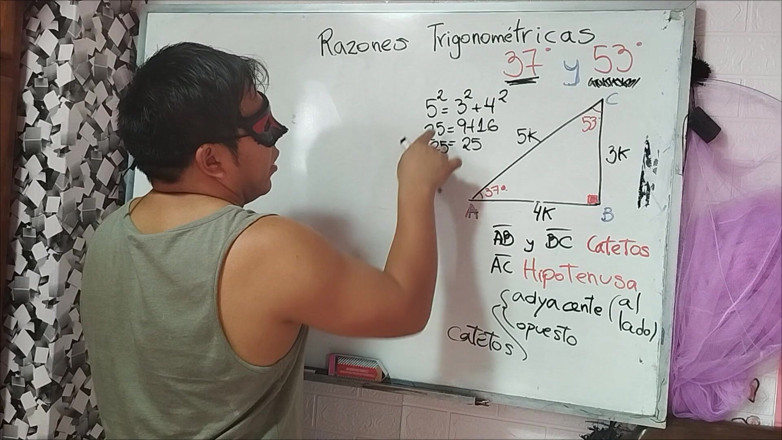 Razones Trigonométricas
37° y 53°
5² = 3² + 4²
25 = 9+16
25 = 25
C
53
5K
3K
37°
A
4K
B
AB y BC Catetos
AC Hipotenusa
catetos
adyacente (al lado)
opuesto